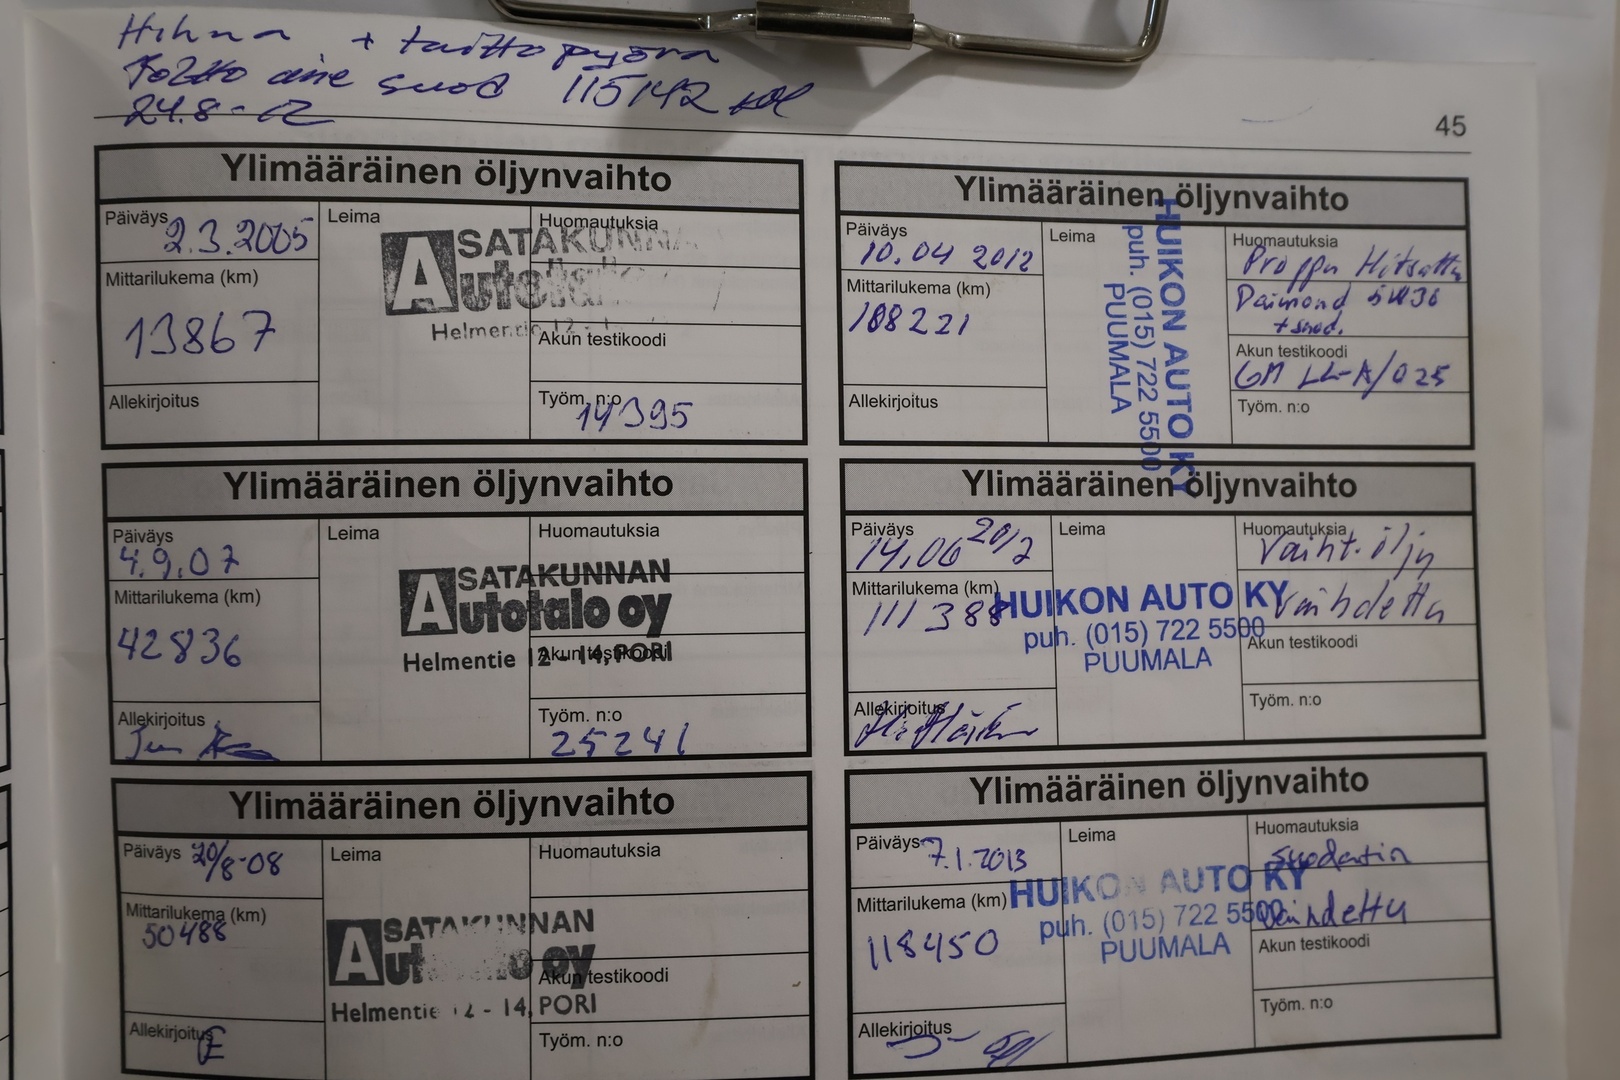 Hihna + taittopyörä
Poltto aine suod 115142
24.8-12
45
Ylimääräinen öljynvaihto
Päiväys
2.3.2005
Leima
Huomautuksia
Mittarilukema (km)
13867
SATAKUNNAN
Autotalo
Helmentie 12 -
Akun testikoodi
Allekirjoitus
Työm. n:o
14395
Ylimääräinen öljynvaihto
Päiväys
4.9.07
Leima
Huomautuksia
Mittarilukema (km)
42836
SATAKUNNAN
Autotalo oy
Helmentie 12 - 14, PORI
Akun testikoodi
Allekirjoitus
Työm. n:o
25241
Ylimääräinen öljynvaihto
Päiväys
20/8-08
Leima
Huomautuksia
Mittarilukema (km)
50488
SATAKUNNAN
Autotalo oy
Helmentie 12 - 14, PORI
Akun testikoodi
Allekirjoitus
Työm. n:o
Ylimääräinen öljynvaihto
Päiväys
10.04 2012
Leima
HUIKON AUTO KY
puh. (015) 722 5500
PUUMALA
Huomautuksia
Proppu Hitsattu
Daimond 5W30
+ suod.
Mittarilukema (km)
108221
Akun testikoodi
GM LL-A/025
Allekirjoitus
Työm. n:o
Ylimääräinen öljynvaihto
Päiväys
14.06 2012
Leima
Huomautuksia
Vaiht. öljy
vaihdettu
Mittarilukema (km)
111388
HUIKON AUTO KY
puh. (015) 722 5500
PUUMALA
Akun testikoodi
Allekirjoitus
Työm. n:o
Ylimääräinen öljynvaihto
Päiväys
7.1.2013
Leima
Huomautuksia
suodatin
vaihdettu
Mittarilukema (km)
118450
HUIKON AUTO KY
puh. (015) 722 5500
PUUMALA
Akun testikoodi
Allekirjoitus
Työm. n:o